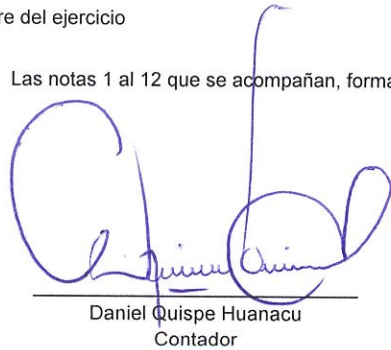 re del ejercicio
Las notas 1 al 12 que se acompañan, forma
Daniel Quispe Huanacu
Contador